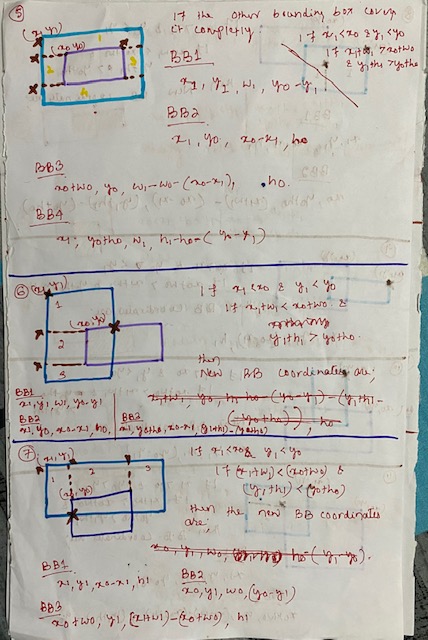 5
If the other bounding box covers
it completly.
(x1,y1)
(x0,y0)
1
2
3
4
If x1<x0 & y1<y0
If x1+w1 > x0+w0
& y1+h1 > y0+h0
BB1
x1, y1, w1, y0-y1
BB2
x1, y0, x0-x1, h0
BB3
x0+w0, y0, w1-w0-(x0-x1), h0.
BB4
x1, y0+h0, w1, h1-h0-(y0-y1)
6
(x1,y1)
1
(x0,y0)
2
3
If x1<x0 & y1<y0
If x1+w1 < x0+w0 &
y1+h1 > y0+h0.
then
New BB coordinates are;
BB1
x1, y1, w1, y0-y1
BB2
x1, y0, x0-x1, h0,
BB3
x1, y0+h0, x0-x1, (y1+h1)-(y0+h0)
x1+w1, y0, h1-h0-(y0-y1)-(y1+h1-
(y0+h0)), h0
7
(x1,y1)
1
2
3
(x0,y0)
If x1<x0 & y1<y0
If (x1+w1) < (x0+w0) &
(y1+h1) < (y0+h0)
then the new BB coordinates
are;
x0, y1, w0, h0-(y1-y0).
BB1
x1, y1, x0-x1, h1
BB2
x0, y1, w0, (y0-y1)
BB3
x0+w0, y1, (x1+w1)-(x0+w0), h1